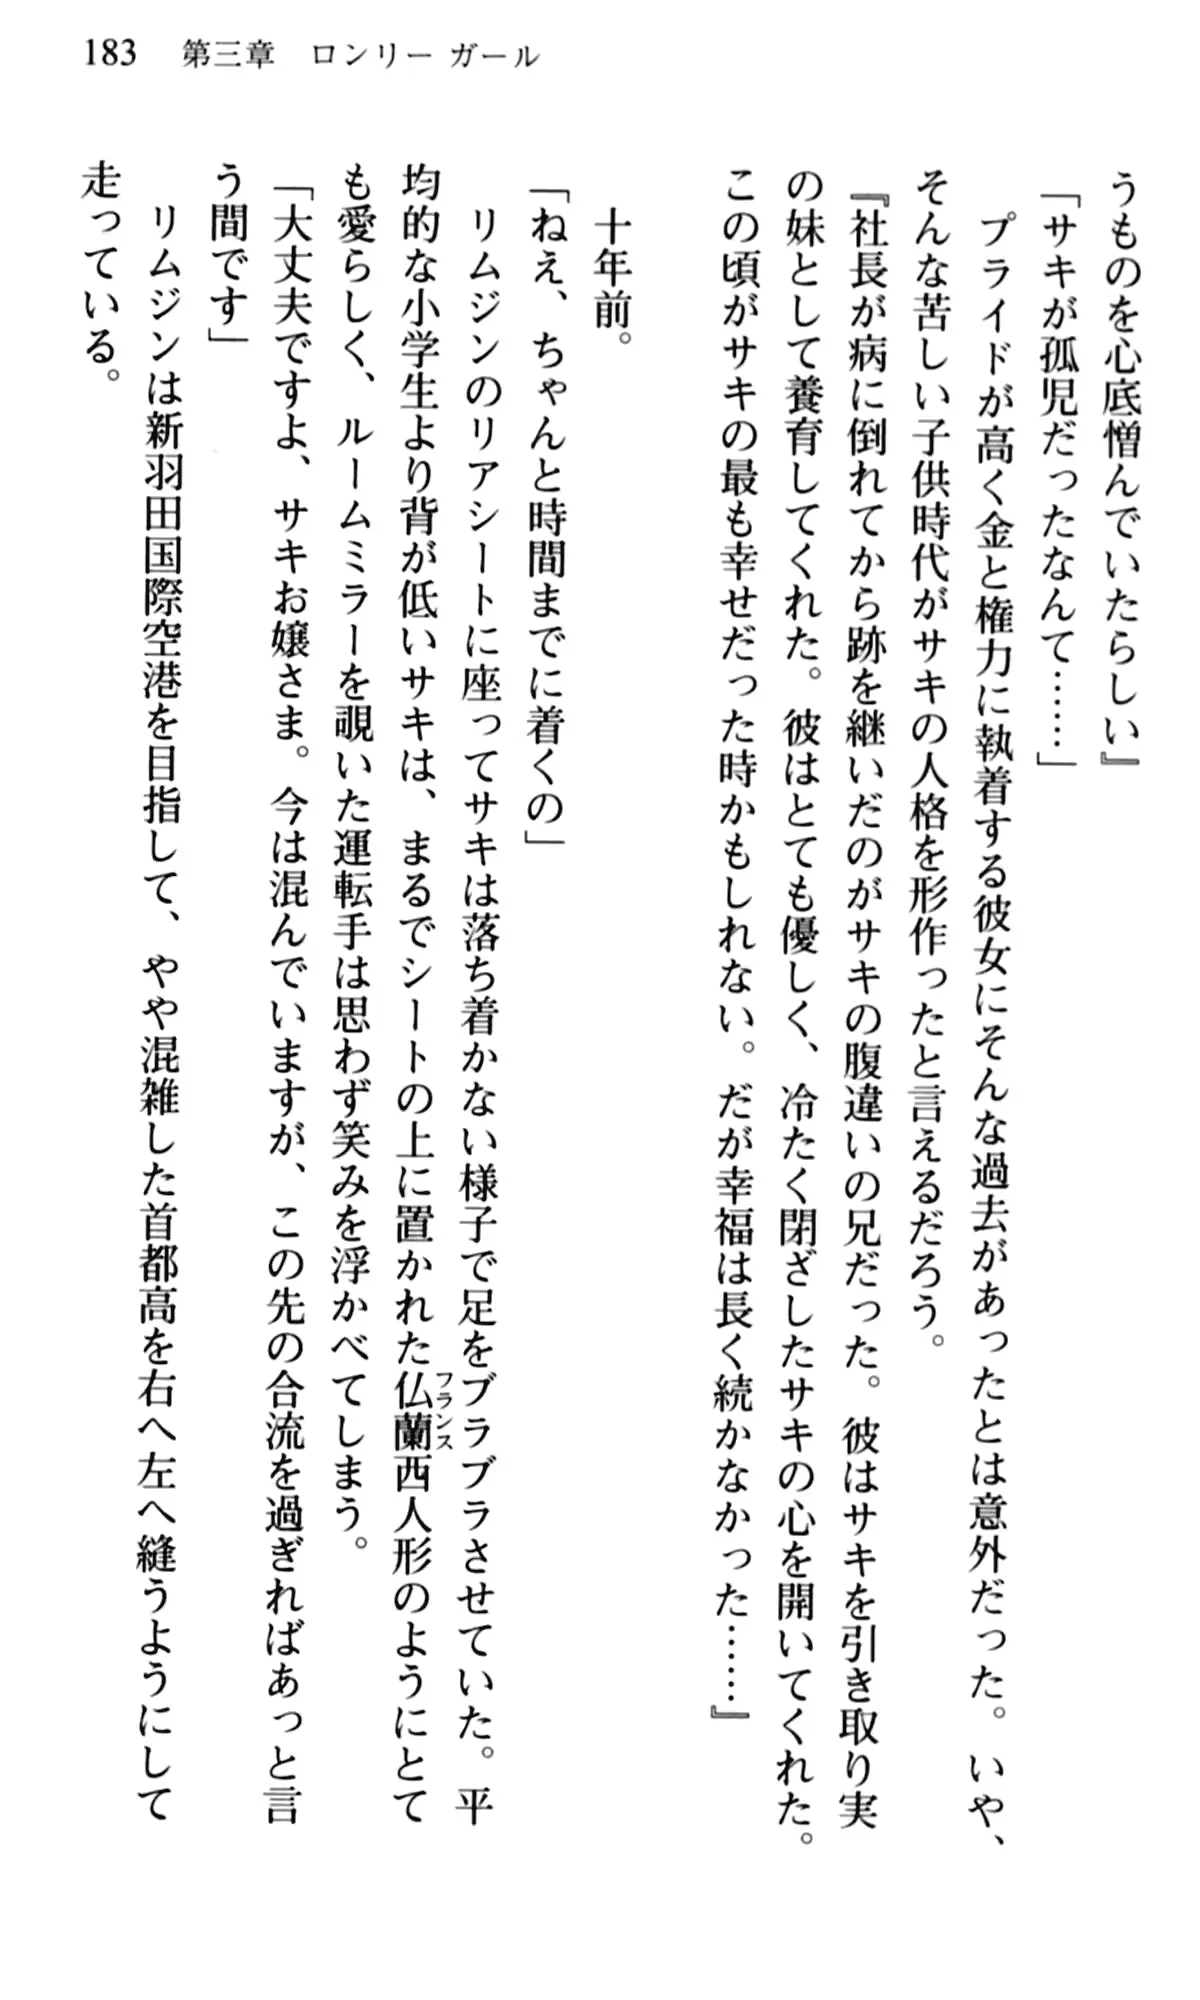 183　第三章　ロンリー ガール
うものを心底憎んでいたらしい』
「サキが孤児だったなんて……」
　プライドが高く金と権力に執着する彼女にそんな過去があったとは意外だった。いや、
そんな苦しい子供時代がサキの人格を形作ったと言えるだろう。
『社長が病に倒れてから跡を継いだのがサキの腹違いの兄だった。彼はサキを引き取り実
の妹として養育してくれた。彼はとても優しく、冷たく閉ざしたサキの心を開いてくれた。
この頃がサキの最も幸せだった時かもしれない。だが幸福は長く続かなかった……』
　十年前。
「ねえ、ちゃんと時間までに着くの」
　リムジンのリアシートに座ってサキは落ち着かない様子で足をブラブラさせていた。平
均的な小学生より背が低いサキは、まるでシートの上に置かれた仏蘭西人形のようにとて
フランス
も愛らしく、ルームミラーを覗いた運転手は思わず笑みを浮かべてしまう。
「大丈夫ですよ、サキお嬢さま。今は混んでいますが、この先の合流を過ぎればあっと言
う間です」
　リムジンは新羽田国際空港を目指して、やや混雑した首都高を右へ左へ縫うようにして
走っている。